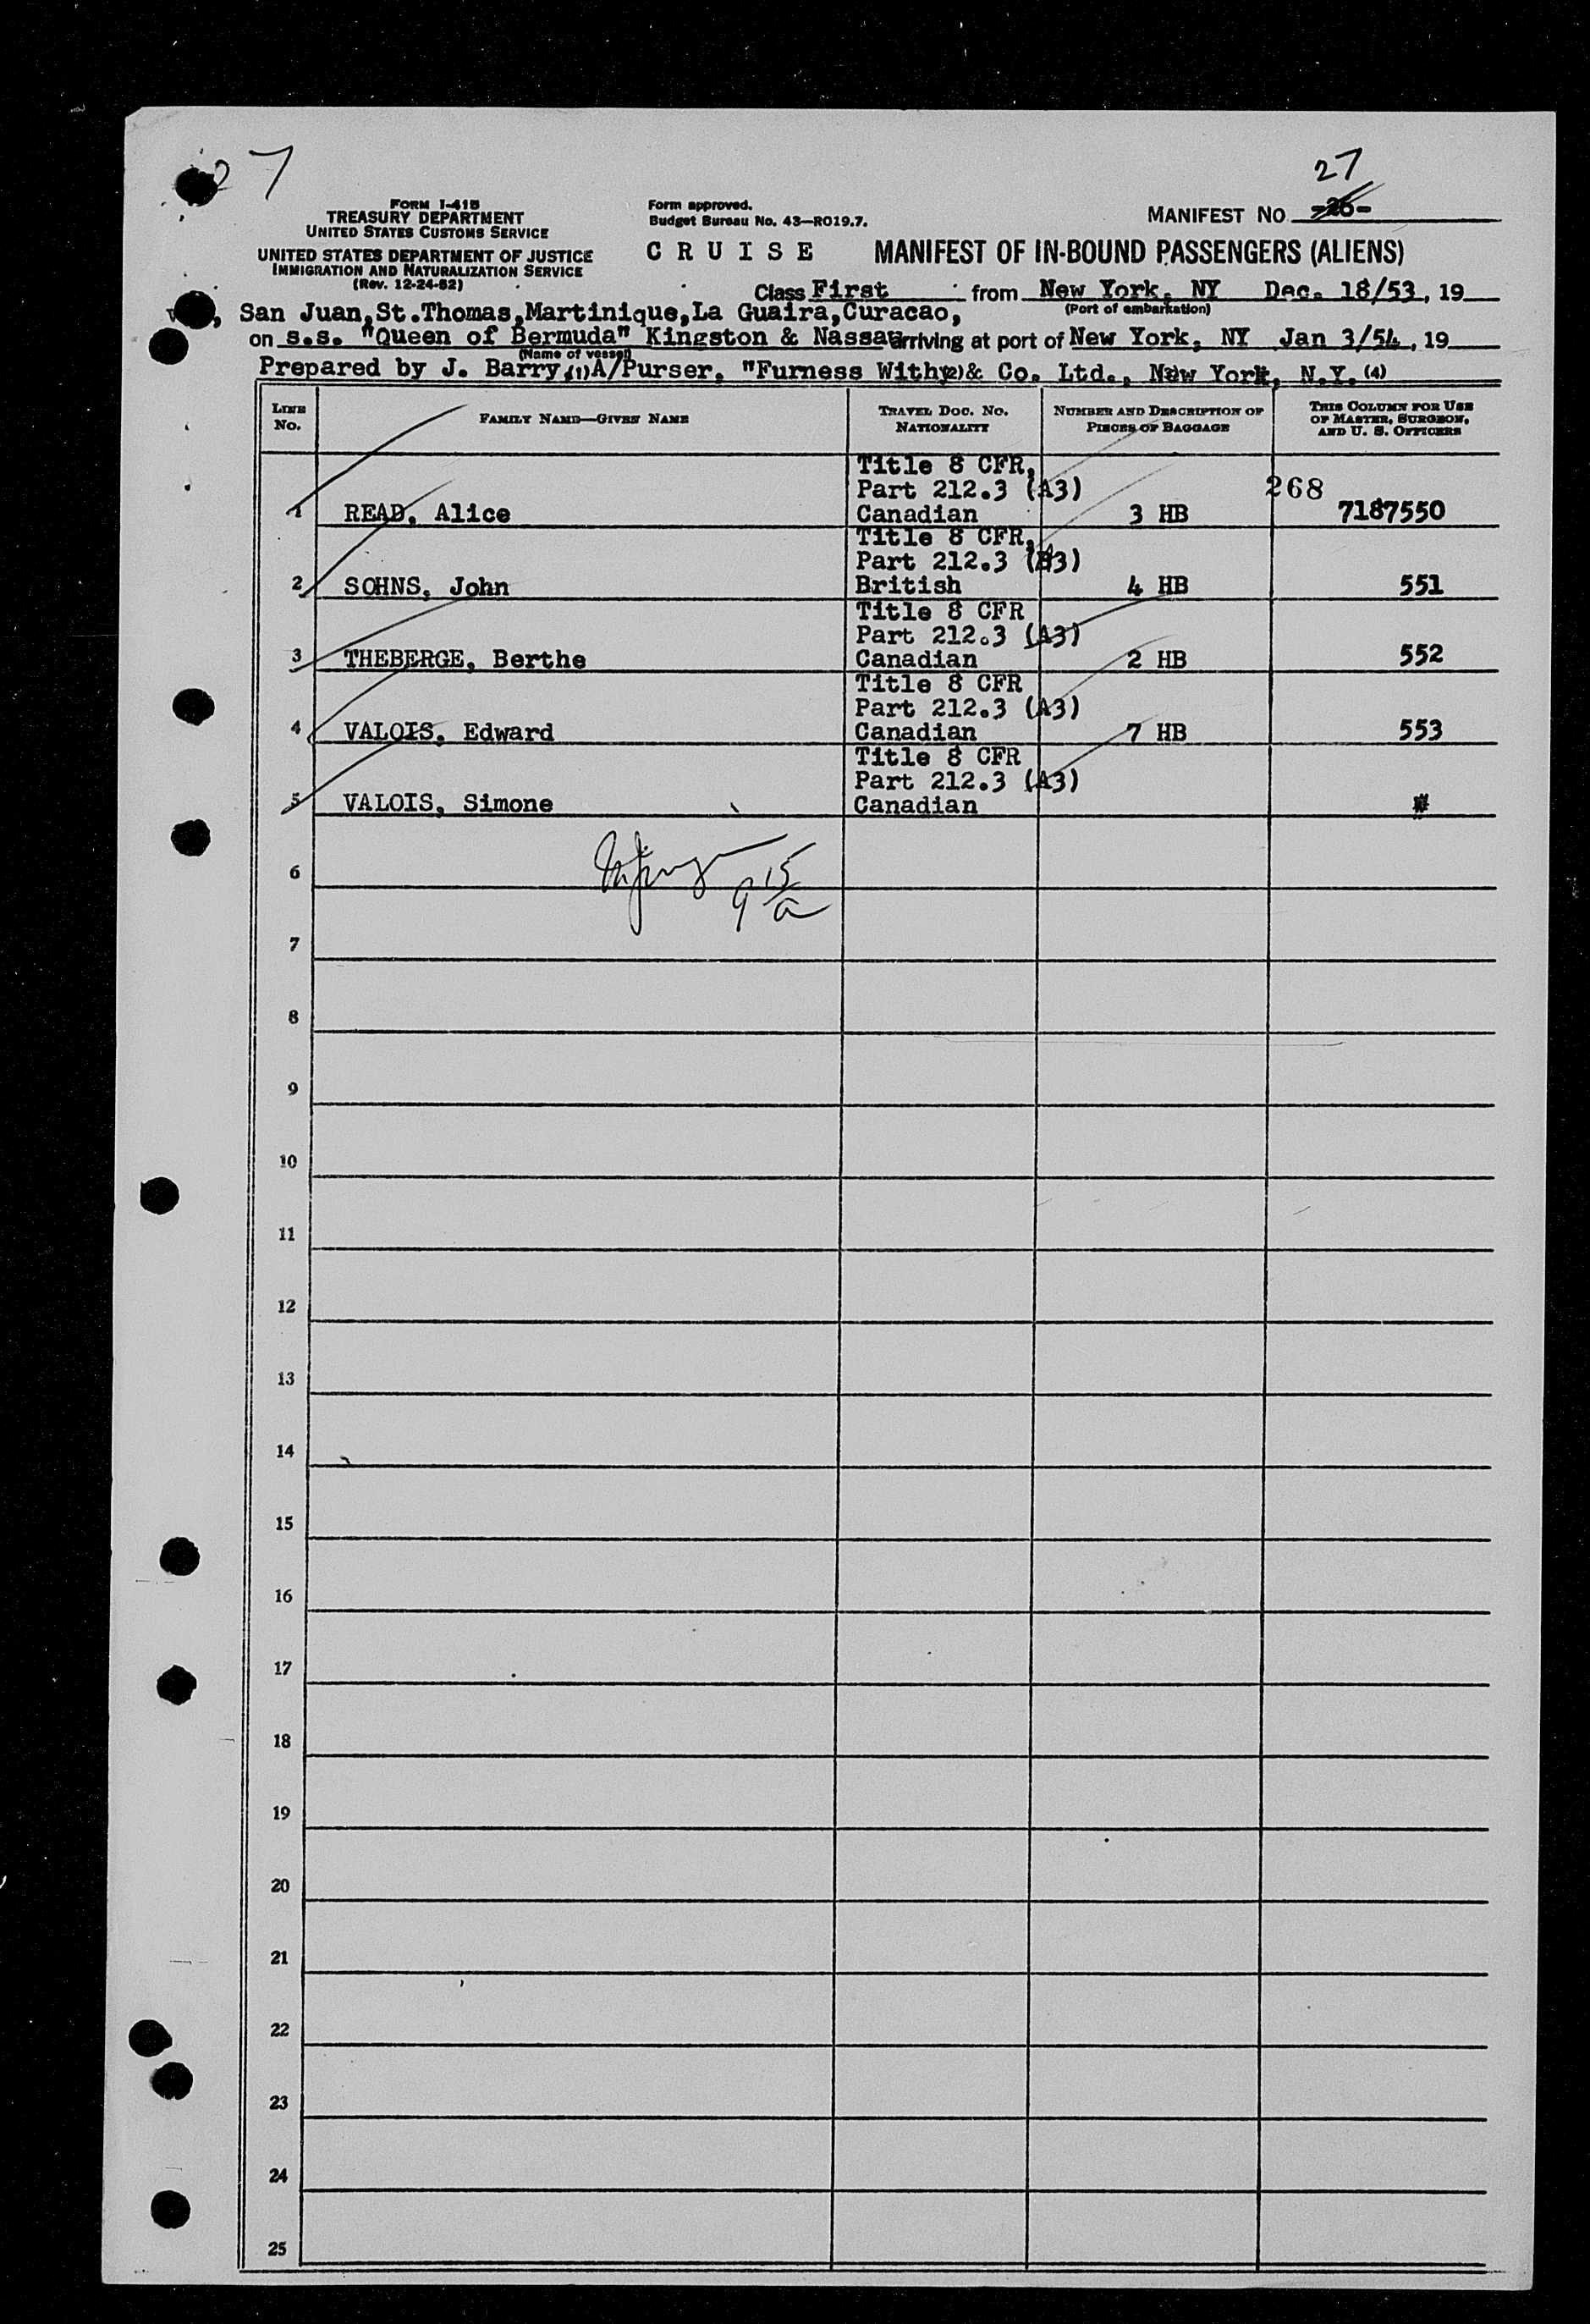 27
27
FORM I-418
TREASURY DEPARTMENT
UNITED STATES CUSTOMS SERVICE
UNITED STATES DEPARTMENT OF JUSTICE
IMMIGRATION AND NATURALIZATION SERVICE
(Rev. 12-24-52)
Form approved.
Budget Bureau No. 43—RO19.7.
MANIFEST NO -26-
C R U I S E MANIFEST OF IN-BOUND PASSENGERS (ALIENS)
Class First from New York, NY Dec. 18/53, 19
(Port of embarkation)
San Juan, St.Thomas, Martinique, La Guaira, Curacao,
on s.s. "Queen of Bermuda" Kingston & Nassau arriving at port of New York, NY Jan 3/54, 19
(Name of vessel)
Prepared by J. Barry, A/Purser, "Furness Withy & Co. Ltd., New York, N.Y.
(1) (2) (4)
LINE No. FAMILY NAME—GIVEN NAME TRAVEL DOC. NO. NATIONALITY NUMBER AND DESCRIPTION OF PIECES OF BAGGAGE THIS COLUMN FOR USE OF MASTER, SURGEON, AND U. S. OFFICERS
Title 8 CFR,
Part 212.3 (A3) 268
1 READ, Alice Canadian 3 HB 7187550
Title 8 CFR,
Part 212.3 (3)
2 SOHNS, John British 4 HB 551
Title 8 CFR
Part 212.3 (A3)
3 THEBERGE, Berthe Canadian 2 HB 552
Title 8 CFR
Part 212.3 (A3)
4 VALOIS, Edward Canadian 7 HB 553
Title 8 CFR
Part 212.3 (A3)
5 VALOIS, Simone Canadian
9 15/a
6
7
8
9
10
11
12
13
14
15
16
17
18
19
20
21
22
23
24
25